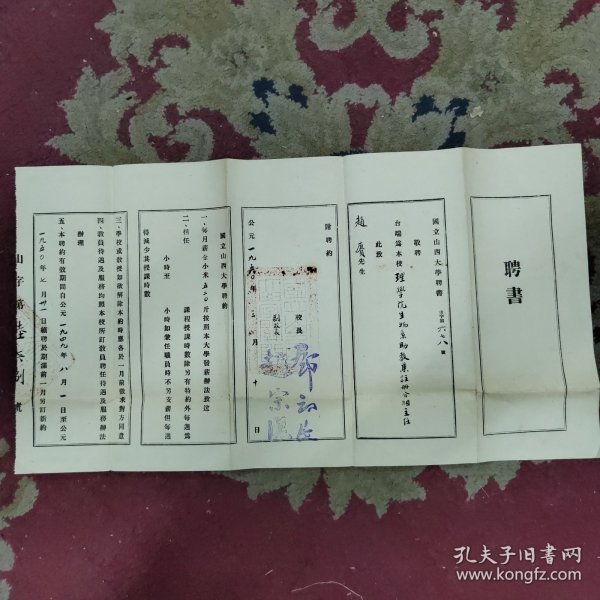 聘書
國立山西大學聘書
字第六七八號
敬聘
台端為本校理學院生物系助教兼註冊分組主任
此致
趙 先生
附聘約
校長 鄧初民
副校長 趙宗復
公元一九五〇年 月 十 日
國立山西大學聘約
一、每月薪金小米五二〇斤按照本大學發薪辦法致送
二、担任 課程授課時數除另有特約外每週為
小時至 小時如兼任職員時不另支薪但每週
得減少其授課時數
三、學校或教授如欲解除本約時應各於一月前徵求對方同意
四、教員待遇及服務均照本校所訂教員聘任待遇及服務辦法
辦理
五、本聘約有效期間自公元一九四九年八月一日至公元
一九五〇年七月卅一日續聘於期滿前一月另訂新約
山字第陸柒捌號
孔夫子旧书网
www.kongfz.com